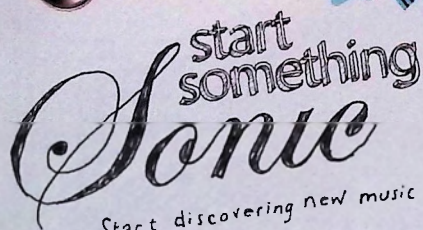 start
something
Sonic
Start discovering new music